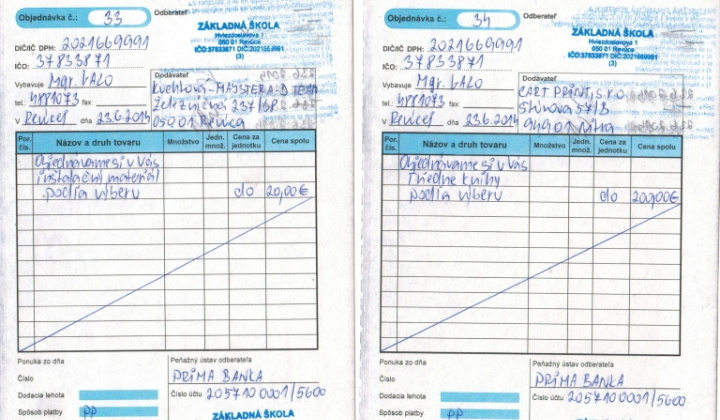 Objednávka č.: 33
Odberateľ
ZÁKLADNÁ ŠKOLA
Hviezdoslavova 1
050 01 Revúca
IČO:37833871 DIČ:2021669991
(3)
DIČ/IČ DPH: 2021669991
IČO: 37833871
Vybavuje Mgr. LALO
tel.: 4881073 fax
v Revúcej dňa 23.6.2014
Dodávateľ
Železničná 237/6
05001 Revúca
Por. čís.
Názov a druh tovaru
Množstvo
Jedn. množ.
Cena za jednotku
Cena spolu
Objednávame si u Vás
inštalačný materiál
podľa výberu do 20,00€
Ponuka zo dňa
Číslo
Dodacia lehota
Spôsob platby PP
Peňažný ústav odberateľa
PRIMA BANKA
Číslo účtu 2057100001/5600
ZÁKLADNÁ ŠKOLA
Objednávka č.: 34
Odberateľ
ZÁKLADNÁ ŠKOLA
Hviezdoslavova 1
050 01 Revúca
IČO:37833871 DIČ:2021669991
(3)
DIČ/IČ DPH: 2021669991
IČO: 37833871
Vybavuje Mgr. LALO
tel.: 4881073 fax:
v Revúcej dňa 23.6.2014
Dodávateľ
CART PRINT, s.r.o.
949 01 Nitra
Por. čís.
Názov a druh tovaru
Množstvo
Jedn. množ.
Cena za jednotku
Cena spolu
Objednávame si u Vás
Triedne knihy
podľa výberu do 200,00€
Ponuka zo dňa
Číslo
Dodacia lehota
Spôsob platby PP
Peňažný ústav odberateľa
PRIMA BANKA
Číslo účtu 2057100001/5600
ZÁKLADNÁ ŠKOLA